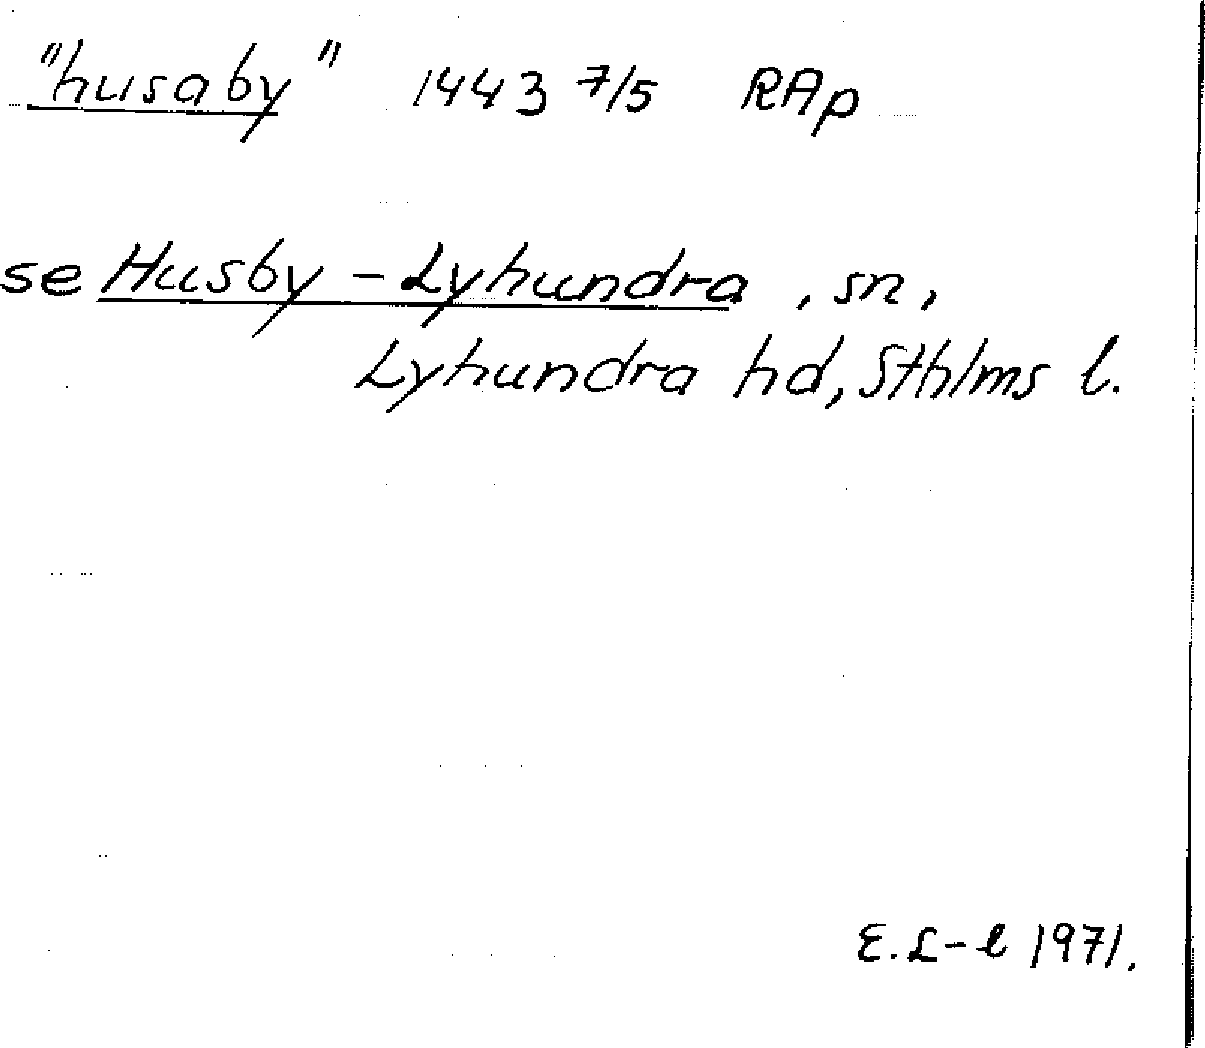 "husaby" 1443 7/5 RAp
se Husby-Lyhundra, sn,
Lyhundra hd, Sthlms l.
E.L-l 1971.